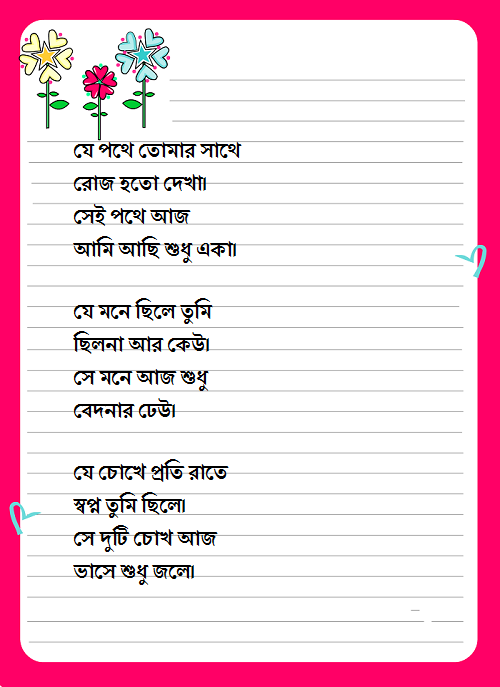 যে পথে তোমার সাথে
রোজ হতো দেখা।
সেই পথে আজ
আমি আছি শুধু একা।
যে মনে ছিলে তুমি
ছিলনা আর কেউ।
সে মনে আজ শুধু
বেদনার ঢেউ।
যে চোখে প্রতি রাতে
স্বপ্ন তুমি ছিলে।
সে দুটি চোখ আজ
ভাসে শুধু জলে।